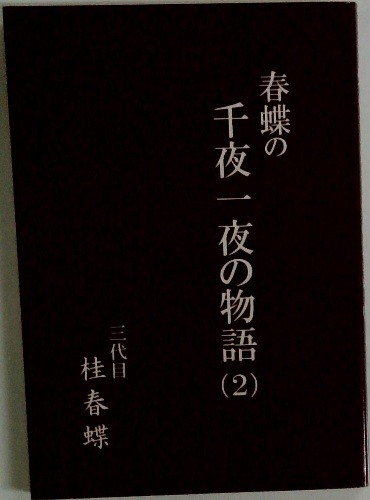 春蝶の
千夜一夜の物語(2)
三代目
桂春蝶